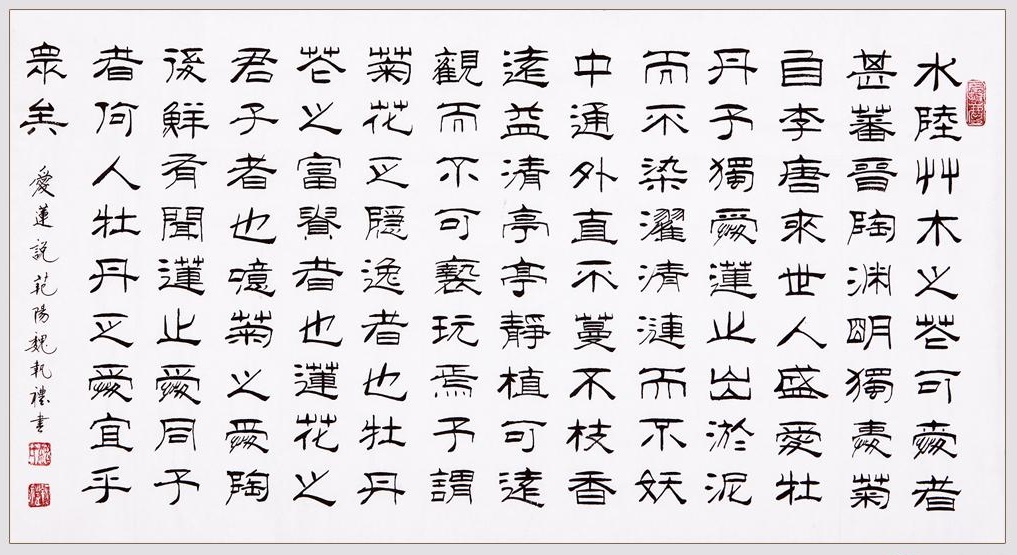 水陸艸木之花可愛者
甚蕃晉陶渊明獨愛菊
自李唐來世人盛愛牡
丹予獨愛蓮之出淤泥
而不染濯清漣而不妖
中通外直不蔓不枝香
遠益清亭亭靜植可遠
觀而不可褻玩焉予謂
菊花之隱逸者也牡丹
花之富貴者也蓮花之
君子者也噫菊之愛陶
後鮮有聞蓮之愛同予
者何人牡丹之愛宜乎
眾矣
愛蓮說范陽魏執禮書